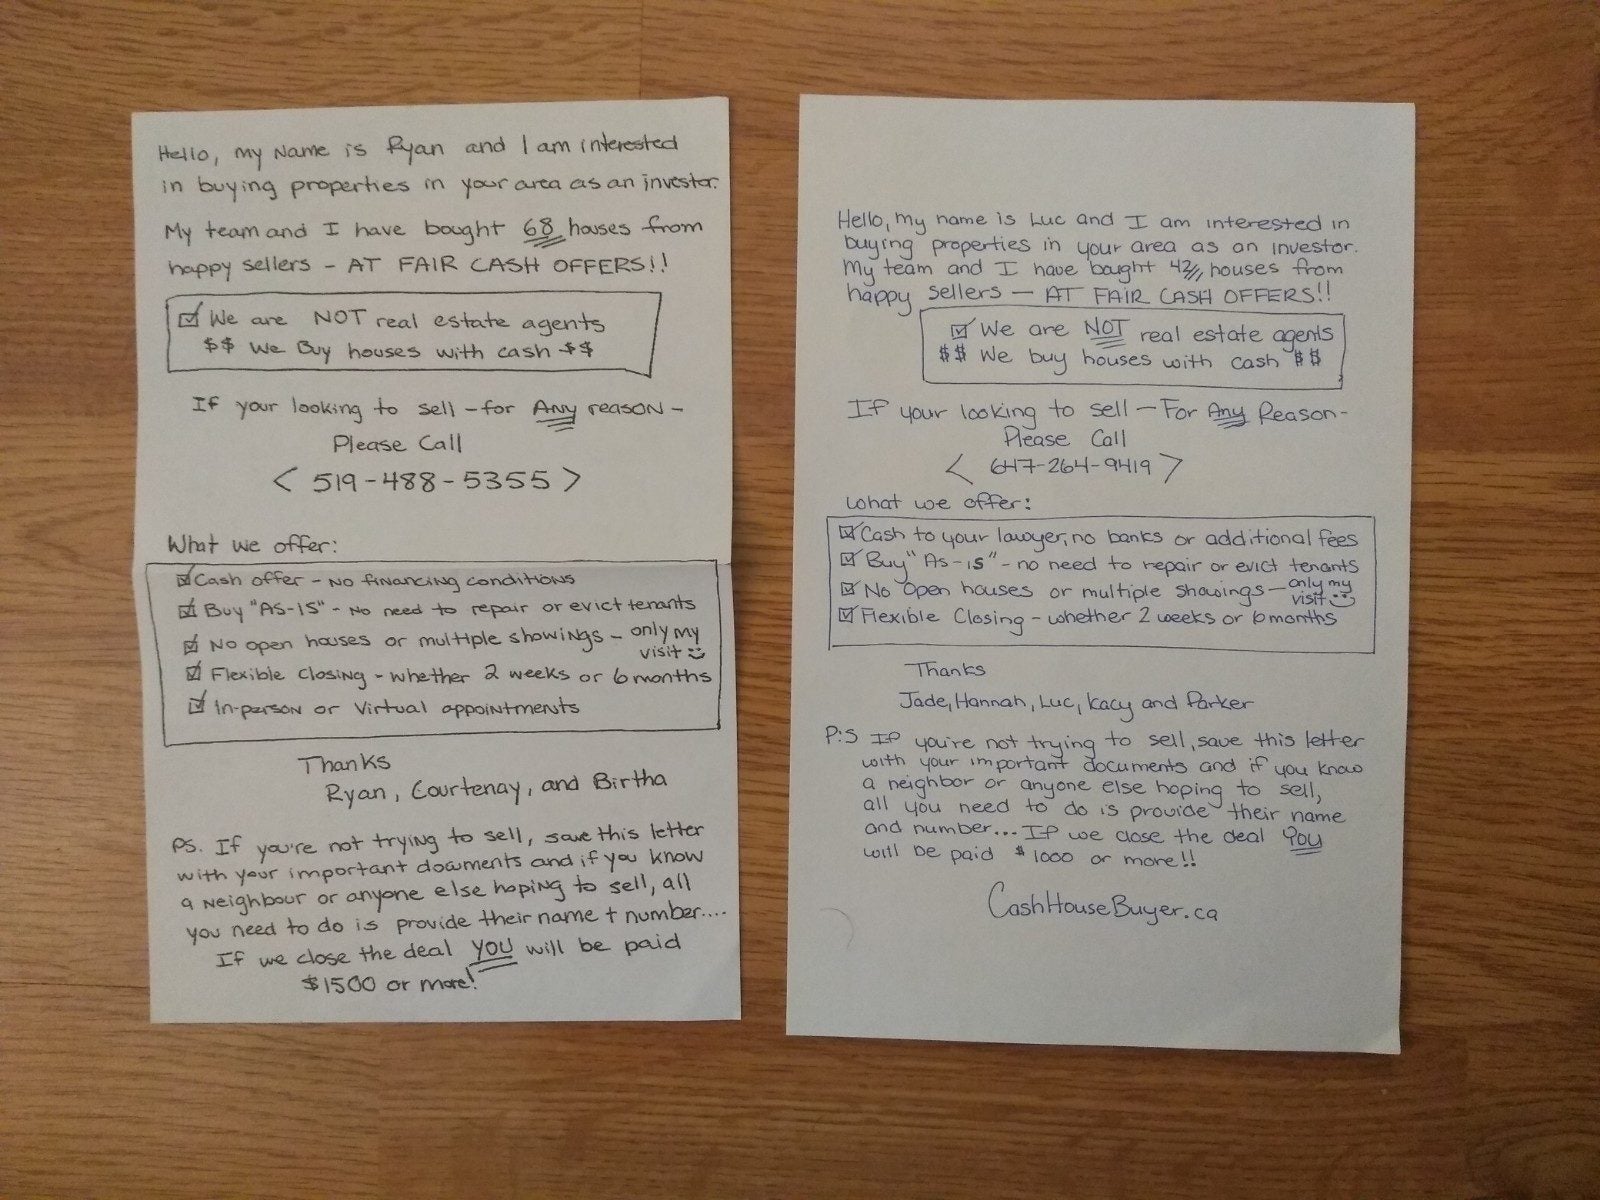 Hello, my Name is Ryan and I am interested
in buying properties in your area as an investor.
My team and I have bought 68 houses from
happy sellers - AT FAIR CASH OFFERS!!
☑ We are NOT real estate agents
$$ We Buy houses with cash $$
If your looking to sell - for Any reason -
Please Call
< 519-488-5355 >
What we offer:
☑ Cash offer - no financing conditions
☑ Buy "AS-IS" - no need to repair or evict tenants
☑ No open houses or multiple showings - only my
visit :)
☑ Flexible closing - whether 2 weeks or 6 months
☑ In-person or virtual appointments
Thanks
Ryan, Courtenay, and Birtha
PS. If you're not trying to sell, save this letter
with your important documents and if you know
a neighbour or anyone else hoping to sell, all
you need to do is provide their name + number....
If we close the deal YOU will be paid
$1500 or more!
Hello, my name is Luc and I am interested in
buying properties in your area as an investor.
My team and I have bought 42 houses from
happy sellers - AT FAIR CASH OFFERS!!
☑ We are NOT real estate agents
$$ We buy houses with cash $$
If your looking to sell - For Any Reason -
Please Call
< 647-264-9419 >
what we offer:
☑ Cash to your lawyer, no banks or additional fees
☑ Buy "As-is" - no need to repair or evict tenants
☑ No open houses or multiple showings - only my
visit :)
☑ Flexible Closing - whether 2 weeks or 6 months
Thanks
Jade, Hannah, Luc, Kacy and Parker
P.S If you're not trying to sell, save this letter
with your important documents and if you know
a neighbor or anyone else hoping to sell,
all you need to do is provide their name
and number... If we close the deal You
will be paid $1000 or more!!
CashHouseBuyer.ca